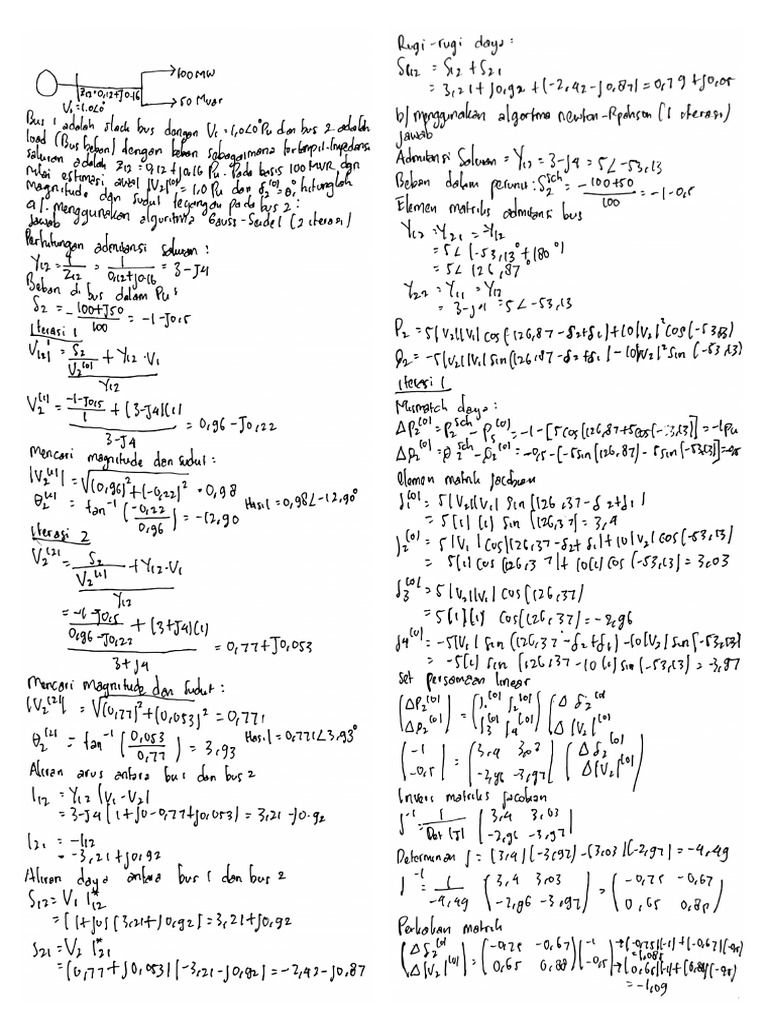 100 MW
Z12=0,12+J0.16
50 Mvar
V1=1.0∠0°
Bus 1 adalah slack bus dengan V1=1,0∠0° Pu dan bus 2 adalah
load (Bus beban) dengan beban sebagaimana tertampil. Impedansi
saluran adalah Z12=0,12+J0,16 Pu. Pada basis 100 MVR dgn
nilai estimasi awal |V2|^(0)=1.0 Pu dan δ2^(0)=0, hitunglah
magnitude dan sudut tegangan pada bus 2:
a). menggunakan algoritma Gauss-Seidel (2 iterasi)
jawab
Perhitungan admitansi saluran:
Y12 = 1/Z12 = 1/(0,12+J0.16) = 3-J4
Beban di bus dalam Pu:
S2 = -(100+J50)/100 = -1-J0,5
Iterasi 1
V2^(1) = (S2/V2^(0) + Y12·V1)/Y12
V2^(1) = (-1-J0,5/1 + (3-J4)(1))/(3-J4) = 0,96-J0,22
Mencari magnitude dan sudut:
|V2^(1)| = √(0,96)²+(-0,22)² = 0,98
θ2^(1) = tan⁻¹(-0,22/0,96) = -12,90 Hasil = 0,98∠-12,90°
Iterasi 2
V2^(2) = (S2/V2^(1) + Y12·V1)/Y12
= (-1-J0,5/(0,96-J0,22) + (3+J4)(1))/(3+J4) = 0,77+J0,053
Mencari magnitude dan sudut:
|V2^(2)| = √(0,77)²+(0,053)² = 0,771
θ2^(2) = tan⁻¹(0,053/0,77) = 3,93 Hasil = 0,771∠3,93°
Aliran arus antara bus 1 dan bus 2
I12 = Y12 (V1-V2)
= 3-J4 (1+J0-0,77+J0,053) = 3,21-J0.92
I21 = -I12
= -3,21+J0,92
Aliran daya antara bus 1 dan bus 2
S12 = V1 I12*
= (1+J0)(3,21+J0,92) = 3,21+J0,92
S21 = V2 I21*
= (0,77+J0,053)(-3,21-J0,92) = -2,42-J0,87
Rugi-rugi daya:
SL12 = S12 + S21
= 3,21+J0,92+(-2,42-J0,87) = 0,79+J0,05
b) menggunakan algoritma newton-Raphson (1 iterasi)
jawab
Admitansi Saluran = Y12 = 3-J4 = 5∠-53,13
Beban dalam perunit: S2^sch = -(100+50)/100 = -1-0,5
Elemen matriks admitansi bus
Y12 = Y21 = -Y12
= 5∠(-53,13°+180°)
= 5∠126,87°
Y22 = Y11 = Y12
= 3-J4 = 5∠-53,13
P2 = 5|V2||V1|cos(126,87-δ2+δ1)+10|V2|²cos(-53,13)
Q2 = -5|V2||V1|sin(126,87-δ2+δ1)-10|V2|²sin(-53,13)
iterasi 1
Mismatch daya:
ΔP2^(0) = P2^sch - P2^(0) = -1-[5cos(126,87+5cos(-53,13)] = -1Pu
ΔQ2^(0) = Q2^sch - Q2^(0) = -0,5-[-5sin(126,87)-5sin(-53,13)] = -0,5
Elemen matrik jacobian
J1^(0) = 5|V2||V1| sin(126,37-δ2+δ1)
= 5(1)(1) sin(126,37) = 3,4
J2^(0) = 5|V1|cos(126,37-δ2+δ1)+10|V2|cos(-53,13)
= 5(1)cos(126,37)+10(1)cos(-53,13) = 3,03
J3^(0) = 5|V2||V1| cos(126,37)
= 5(1)(1) cos(126,37) = -2,96
J4^(0) = -5|V1| sin(126,37-δ2+δ1)-10|V2|sin(-53,13)
= -5(1) sin(126,37-10(1)sin(-53,13) = -3,97
Set persamaan linear
(ΔP2^(0) ΔQ2^(0)) = (J1^(0) J2^(0) J3^(0) J4^(0)) (Δδ2^(0) Δ|V2|^(0))
(-1 -0,5) = (3,4 3,03 -2,96 -3,97) (Δδ2^(0) Δ|V2|^(0))
Invers matriks jacobian
J⁻¹ = 1/Det(J) (3,4 3,03 -2,96 -3,97)
Determinan J = (3,4)(-3,97)-(3,03)(-2,97) = -4,49
J⁻¹ = 1/-4,49 (3,4 3,03 -2,96 -3,97) = (-0,75 -0,67 0,65 0,88)
Perkalian matrik
(Δδ2^(0) Δ|V2|^(0)) = (-0,75 -0,67 0,65 0,88)(-1 -0,5) → (-0,75)(-1)+(-0,67)(-0,5)
= 1,085
→ (0,65)(-1)+(0,88)(-0,5)
= -1,09